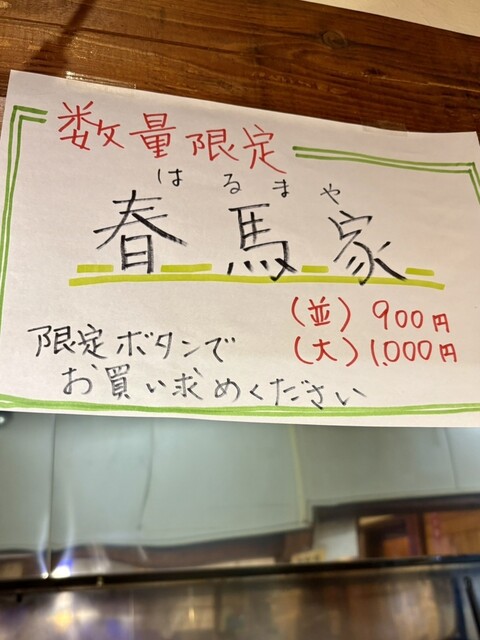 数量限定
はるまや
春馬家
(並) 900円
(大) 1,000円
限定ボタンで
お買い求めください